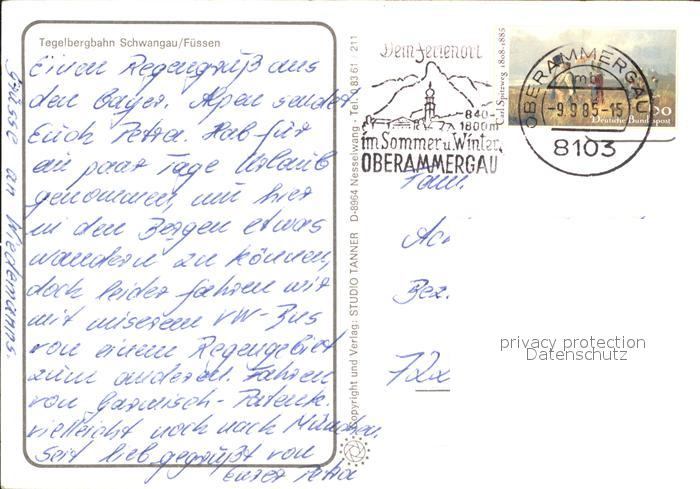 Tegelbergbahn Schwangau/Füssen
Einen Regengruß aus
den bayer. Alpen sendet
Euch Petra. Hab für
ein paar Tage Urlaub
genommen, um hier
in den Bergen etwas
wandern zu können,
doch leider fahren wir
mit unserem VW-Bus
von einem Regengebiet
zum anderen. Fahren
von Garmisch-Partenk.
vielleicht noch nach München.
Seit lieb gegrüßt von
Eurer Petra
Grüsse an Wiedemanns.
Copyright und Verlag: STUDIO TANNER D-8964 Nesselwang - Tel. 0 83 61 / 211
Dein Ferienort
840-
1800m
im Sommer u. Winter
OBERAMMERGAU
Carl Spitzweg 1808-1885
Deutsche Bundespost
OBERAMMERGAU
mb
-9.9.85-15
8103
Fam.
Bez.
72
privacy protection
Datenschutz